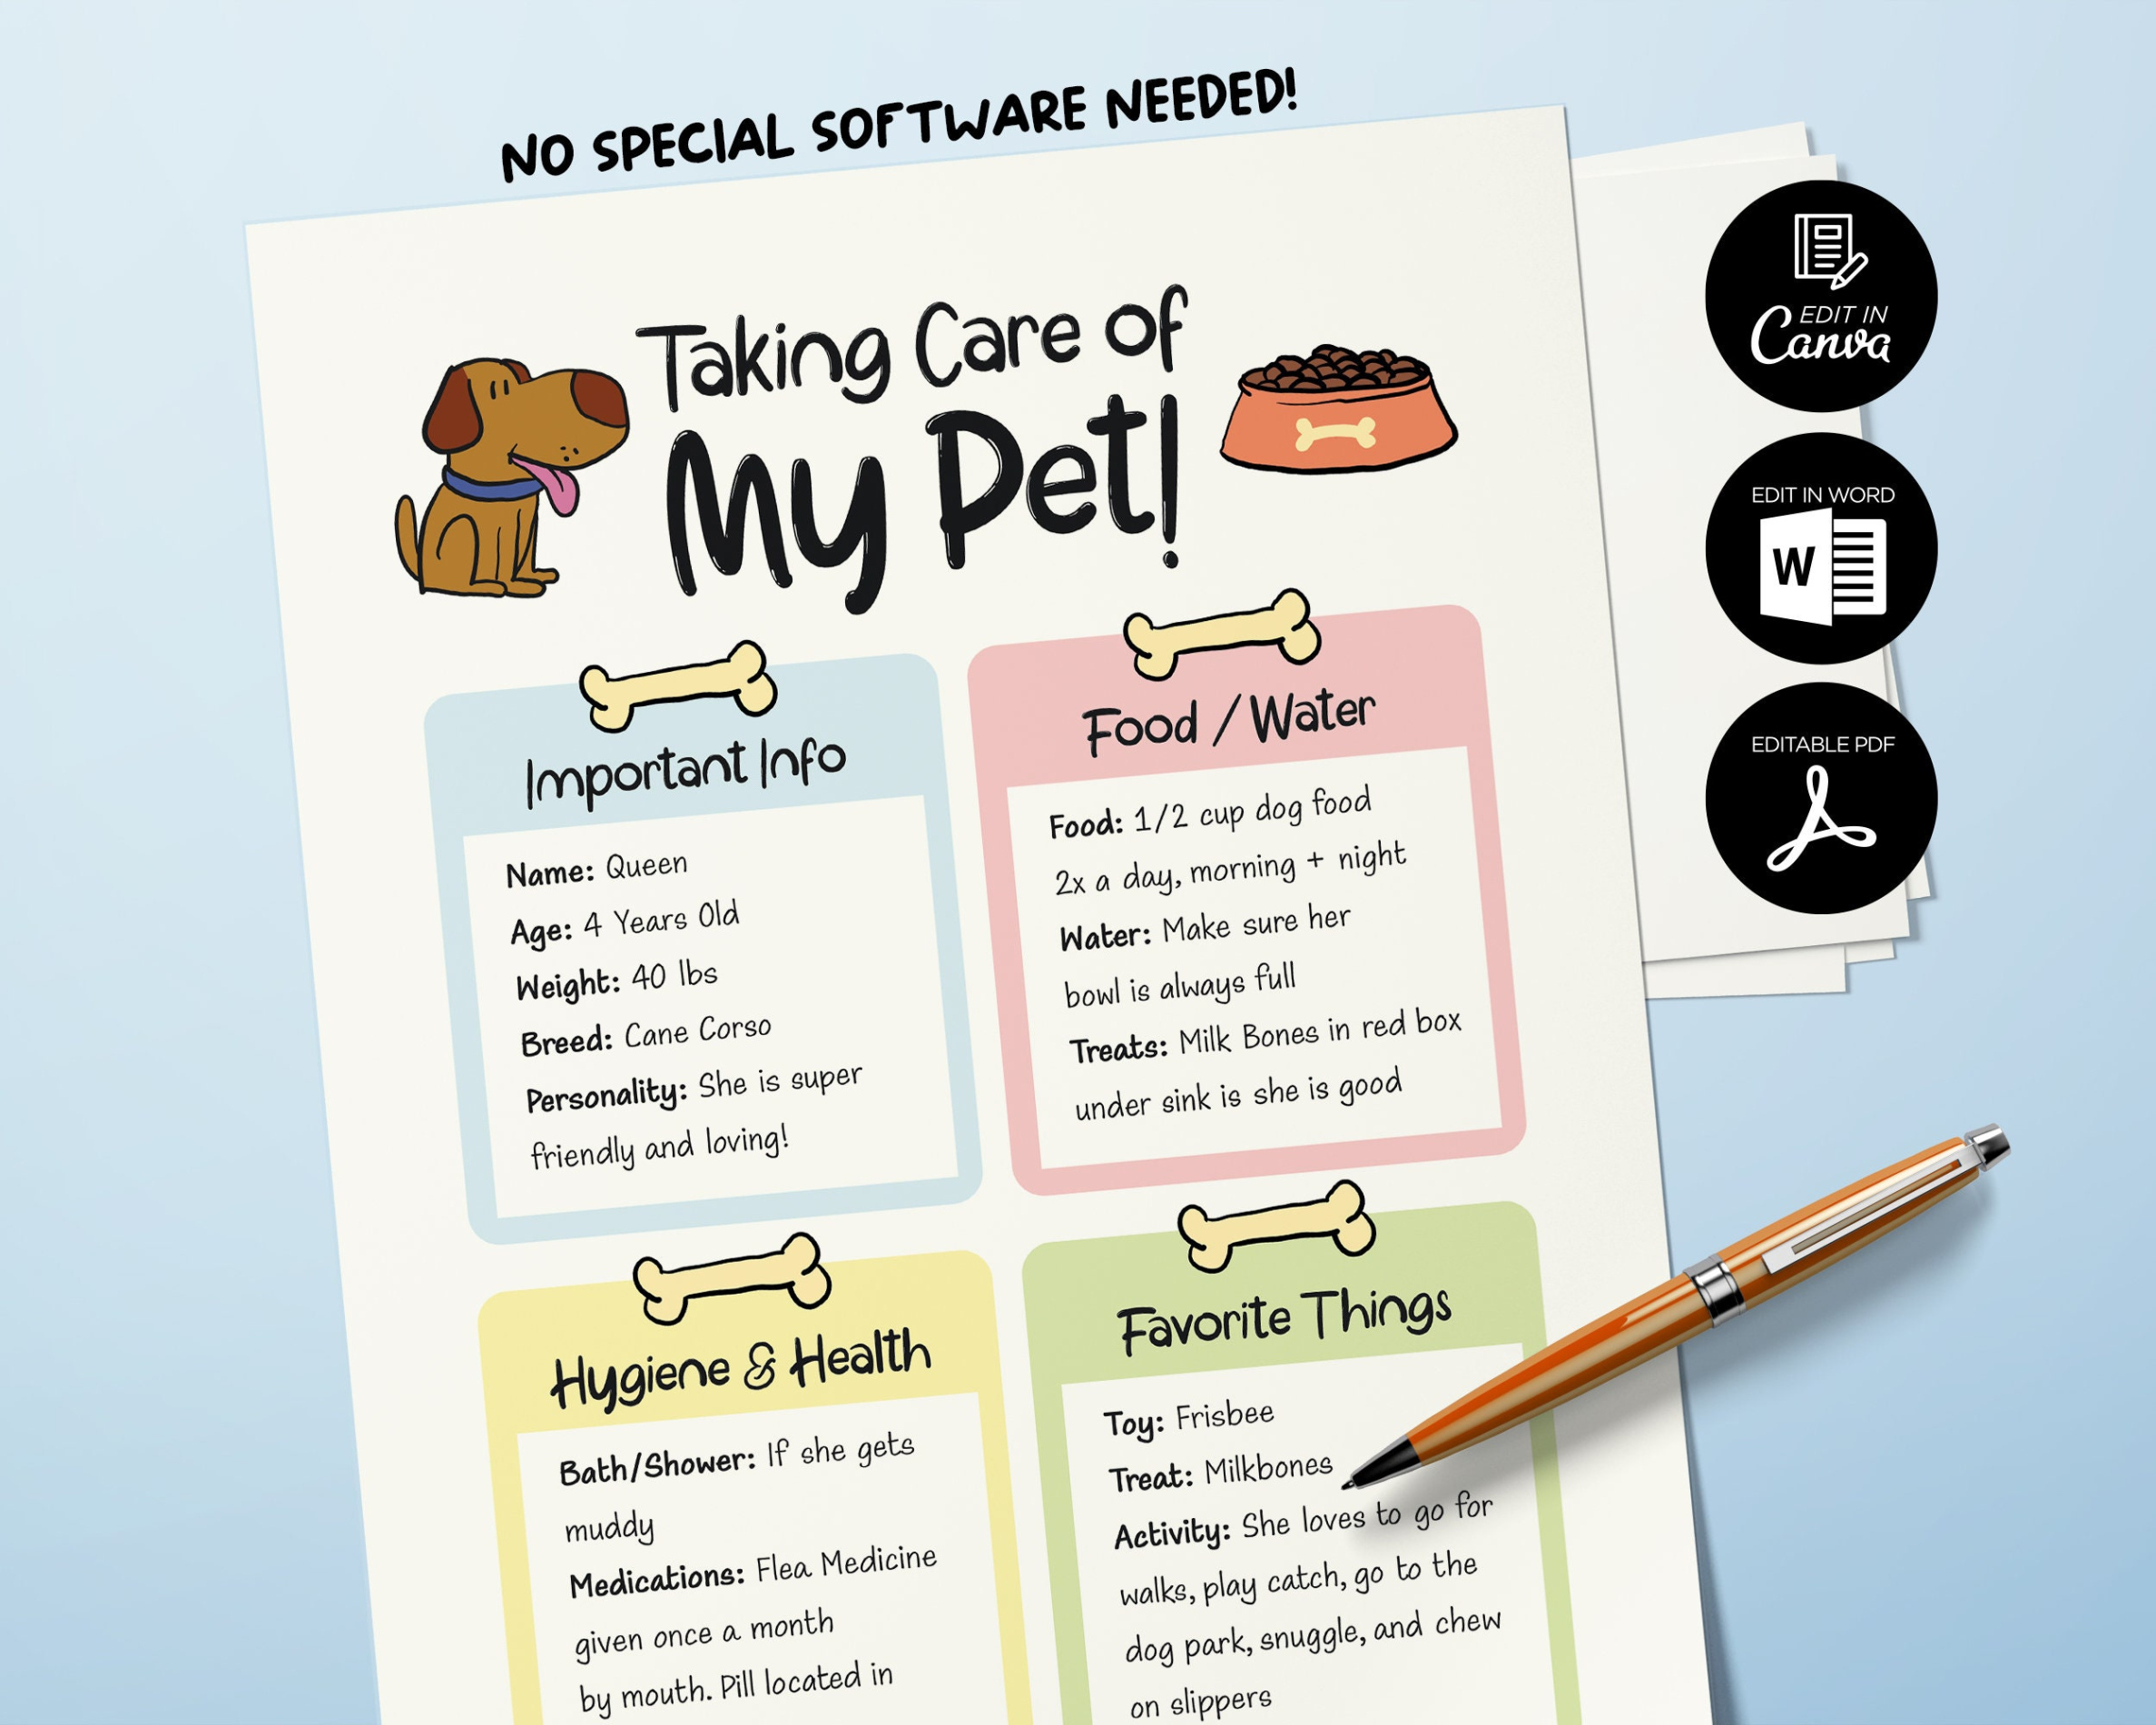 NO SPECIAL SOFTWARE NEEDED!
Taking Care of
My Pet!
Important Info
Name: Queen
Age: 4 Years Old
Weight: 40 lbs
Breed: Cane Corso
Personality: She is super
friendly and loving!
Food / Water
Food: 1/2 cup dog food
2x a day, morning + night
Water: Make sure her
bowl is always full
Treats: Milk Bones in red box
under sink is she is good
Hygiene & Health
Bath/Shower: If she gets
muddy
Medications: Flea Medicine
given once a month
by mouth. Pill located in
Favorite Things
Toy: Frisbee
Treat: Milkbones
Activity: She loves to go for
walks, play catch, go to the
dog park, snuggle, and chew
on slippers
EDIT IN
Canva
EDIT IN WORD
W
EDITABLE PDF